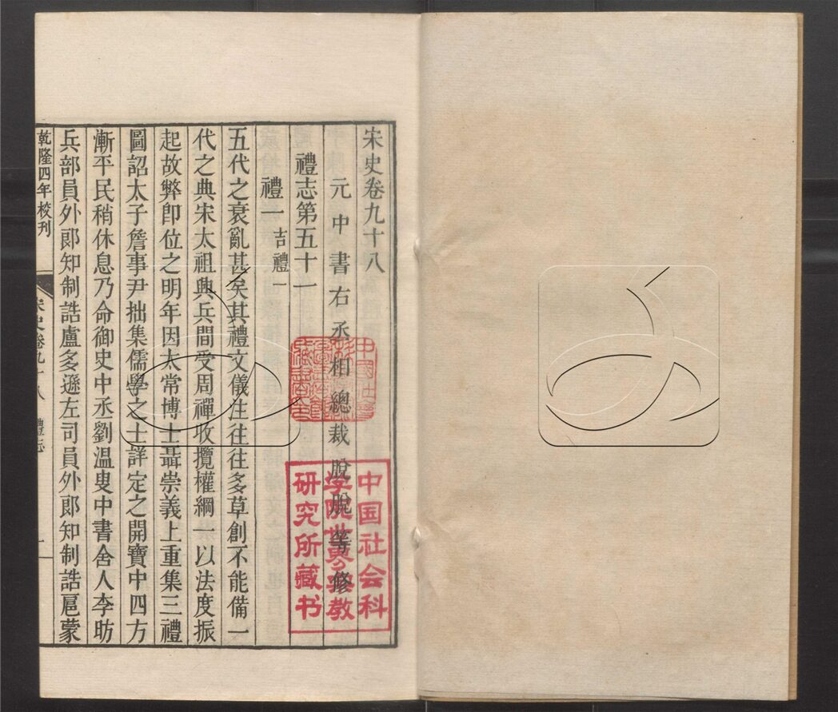 宋史卷九十八
元中書右丞相總裁脫脫等修
禮志第五十一
禮一 吉禮一
五代之衰亂甚矣其禮文儀注往往多草創不能備一
代之典宋太祖興兵間受周禪收攬權綱一以法度振
起故弊卽位之明年因太常博士聶崇義上重集三禮
圖詔太子詹事尹拙集儒學之士詳定之開寶中四方
漸平民稍休息乃命御史中丞劉溫叟中書舍人李昉
兵部員外郞知制誥盧多遜左司員外郞知制誥扈蒙
乾隆四年校刊 宋史卷九十八 禮志 一
中国社会科
学院世界宗教
研究所藏书